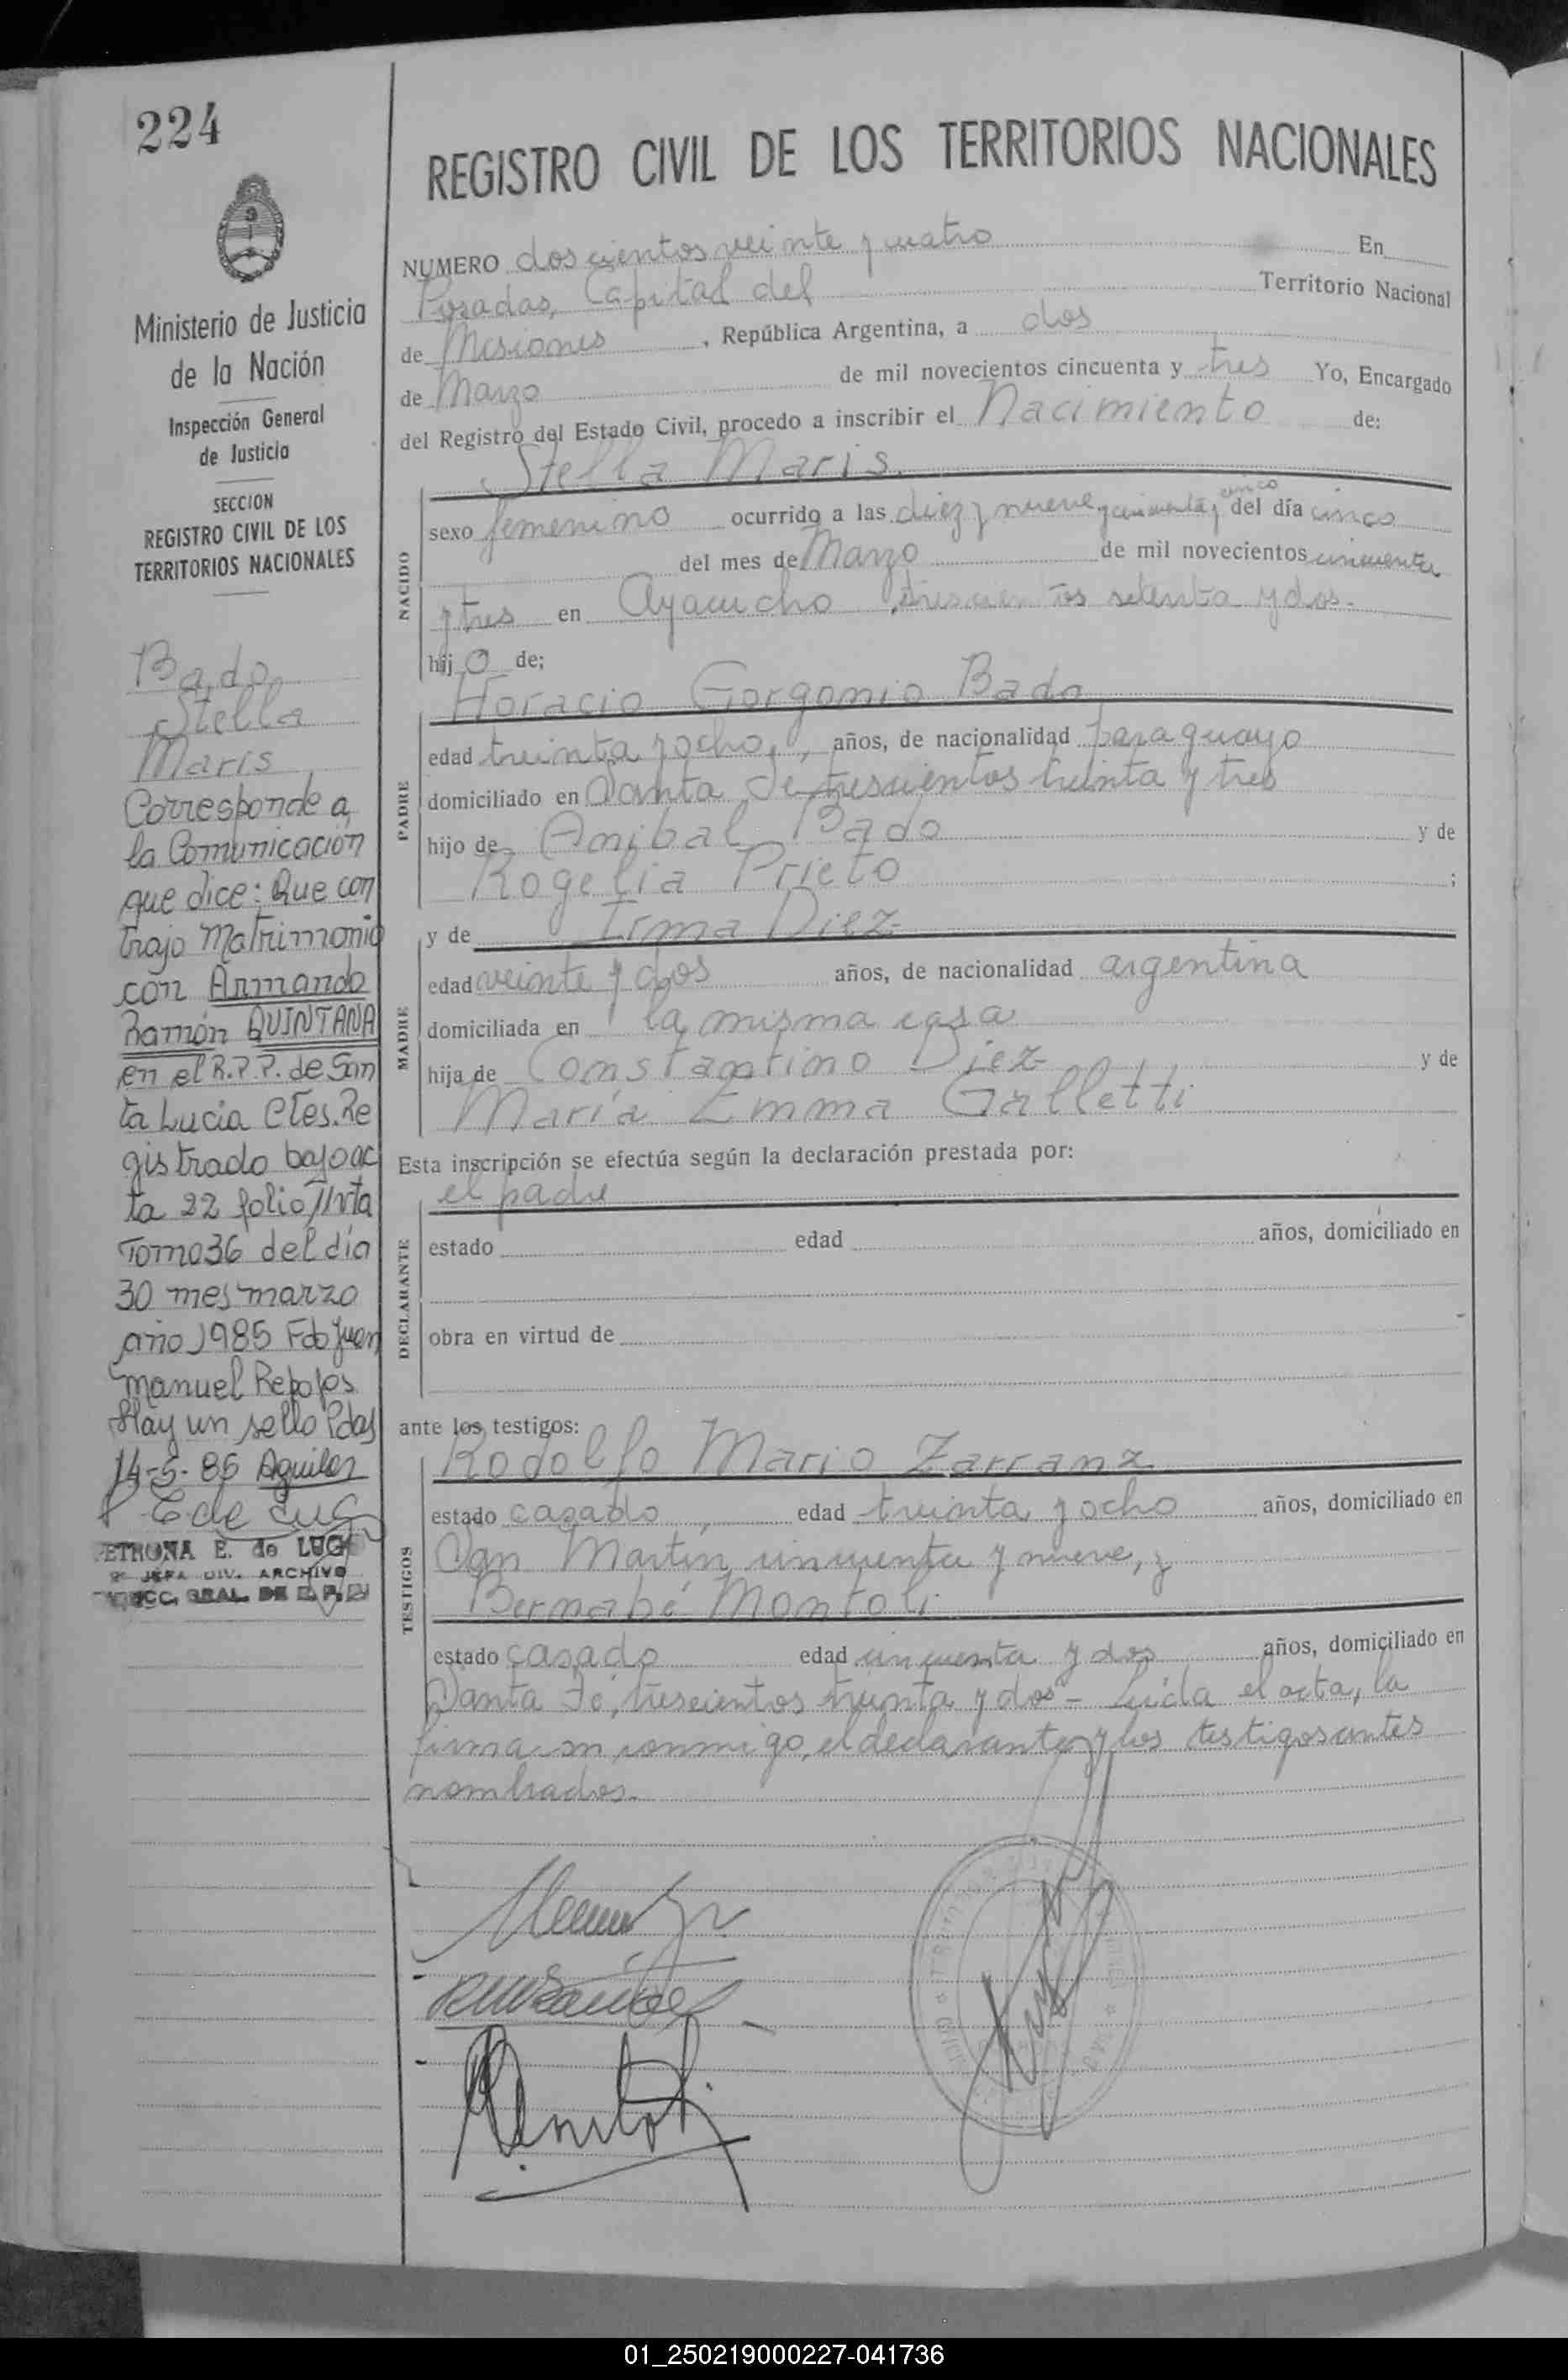 224
Ministerio de Justicia
de la Nación
Inspección General
de Justicia
SECCION
REGISTRO CIVIL DE LOS
TERRITORIOS NACIONALES
Bado
Stella
Maris
Corresponde a
la Comunicación
que dice: Que con
trajo Matrimonio
con Armando
Ramón QUINTANA
en el R.P.P. de San
ta Lucia Ctes. Re
gistrado bajo ac
ta 22 folio 11vta
Tomo 36 del día
30 mes marzo
año 1985 Fdo Juan
Manuel
Hay un sello Pdas
14-5-85 Aguilar
E de Lugo
ETRONA E. de LUGO
JEFA DIV. ARCHIVO
GRAL. DE
REGISTRO CIVIL DE LOS TERRITORIOS NACIONALES
NUMERO doscientos veinte y cuatro En
Posadas, Capital del Territorio Nacional
de Misiones, República Argentina, a dos
de Marzo de mil novecientos cincuenta y tres Yo, Encargado
del Registro del Estado Civil, procedo a inscribir el Nacimiento de:
Stella Maris.
NACIDO
sexo femenino ocurrido a las diez y nueve y cincuenta y cinco del día cinco
del mes de Marzo de mil novecientos cincuenta
y tres en Ayacucho, trescientos setenta y dos.
hijo de;
Horacio Gorgonio Bado
PADRE
edad treinta y ocho, años, de nacionalidad paraguayo
domiciliado en Santa Fe trescientos treinta y tres
hijo de Anibal Bado y de
Rogelia Prieto ;
y de Irma Diez
MADRE
edad veinte y dos años, de nacionalidad argentina
domiciliada en la misma casa
hija de Constantino Diez y de
María Emma Galletti
Esta inscripción se efectúa según la declaración prestada por:
el padre
DECLARANTE
estado edad años, domiciliado en
obra en virtud de
ante los testigos:
Rodolfo Mario Zarranz
TESTIGOS
estado casado, edad treinta y ocho años, domiciliado en
San Martín, cincuenta y nueve, y
Bernabé Montoli
estado casado edad cincuenta y dos años, domiciliado en
Santa Fé, trescientos treinta y dos - Leída el acta, la
firman conmigo, el declarante y los testigos antes
nombrados.
01_250219000227-041736